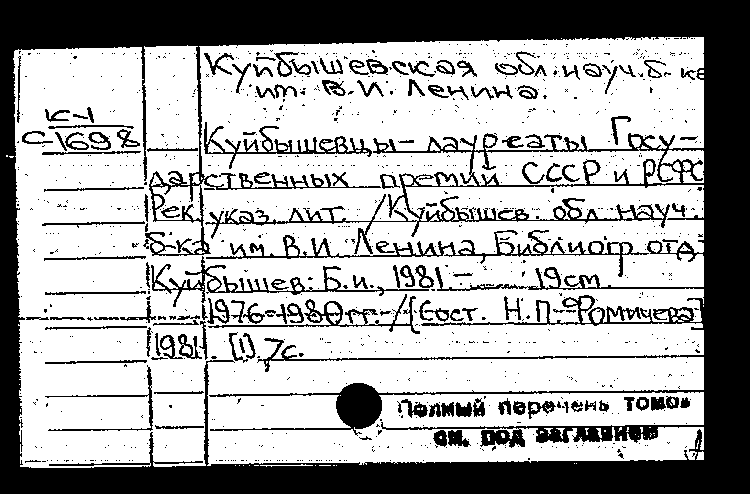 Куйбышевская обл. науч. б-ка
им. В.И. Ленина.
К-1
С-1698
Куйбышевцы – лауреаты Госу-
дарственных премий СССР и РСФС
Рек. указ. лит. / Куйбышев. обл. науч.
б-ка им. В.И. Ленина, Библиогр. отд.
Куйбышев: Б.и., 1981 – 19 см.
1976–1980 гг. – / [Сост. Н.П. Фомичева]
1981. [1], 7 с.
Полный перечень томов
см. под заглавием